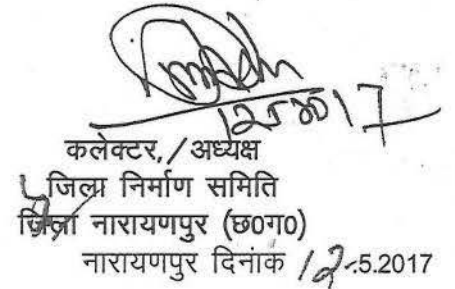 कलेक्टर,/अध्यक्ष
जिला निर्माण समिति
जिला नारायणपुर (छ0ग0)
नारायणपुर दिनांक 12.5.2017